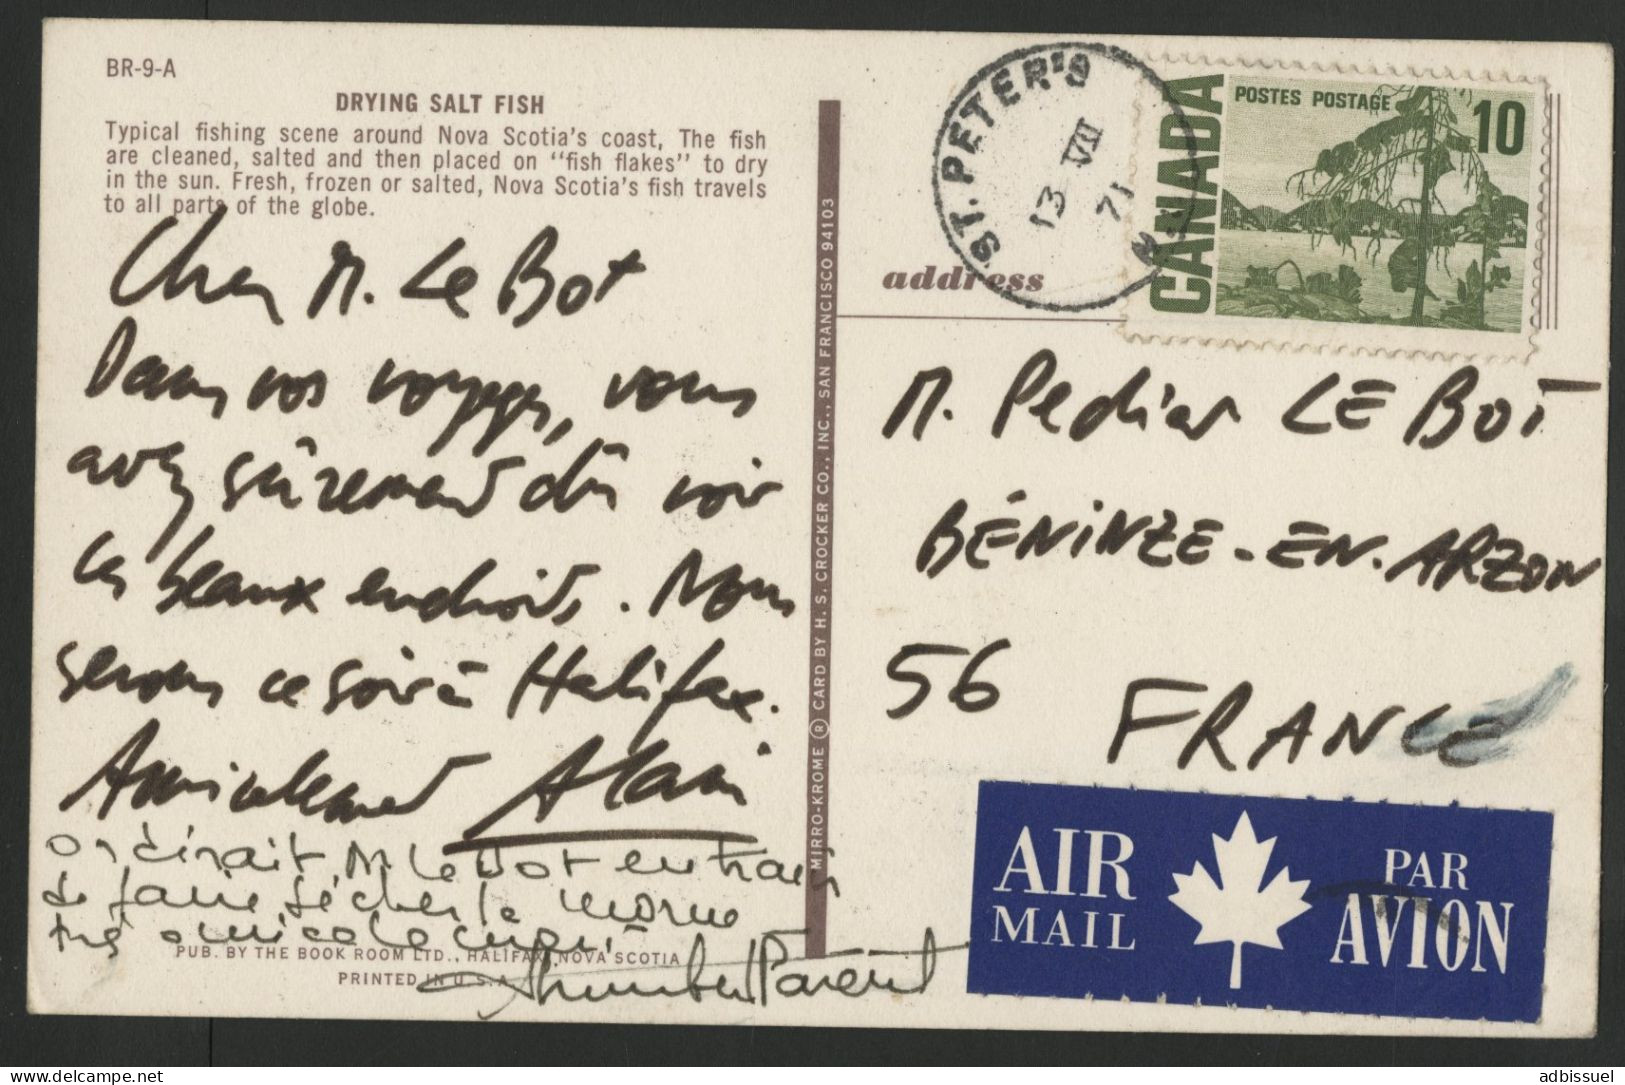 BR-9-A
DRYING SALT FISH
Typical fishing scene around Nova Scotia's coast, The fish
are cleaned, salted and then placed on "fish flakes" to dry
in the sun. Fresh, frozen or salted, Nova Scotia's fish travels
to all parts of the globe.
Cher M. Le Bot
Dans vos voyages, vous
avez sûrement dû voir
ces beaux endroits. Nous
serons ce soir à Halifax.
Amicalement Alain
on dirait M. Le Bot en train
de faire sécher la morue
très amicalement
Parent
PUB. BY THE BOOK ROOM LTD., HALIFAX, NOVA SCOTIA
PRINTED IN U.S.A.
MIRRO-KROME ® CARD BY H. S. CROCKER CO., INC., SAN FRANCISCO 94103
ST. PETER'S
13 VII
71
N.
CANADA
POSTES POSTAGE
10
address
M. LE BOT
BÉNINZE-EN-ARZON
56
FRANCE
AIR
MAIL
PAR
AVION
adbissuel